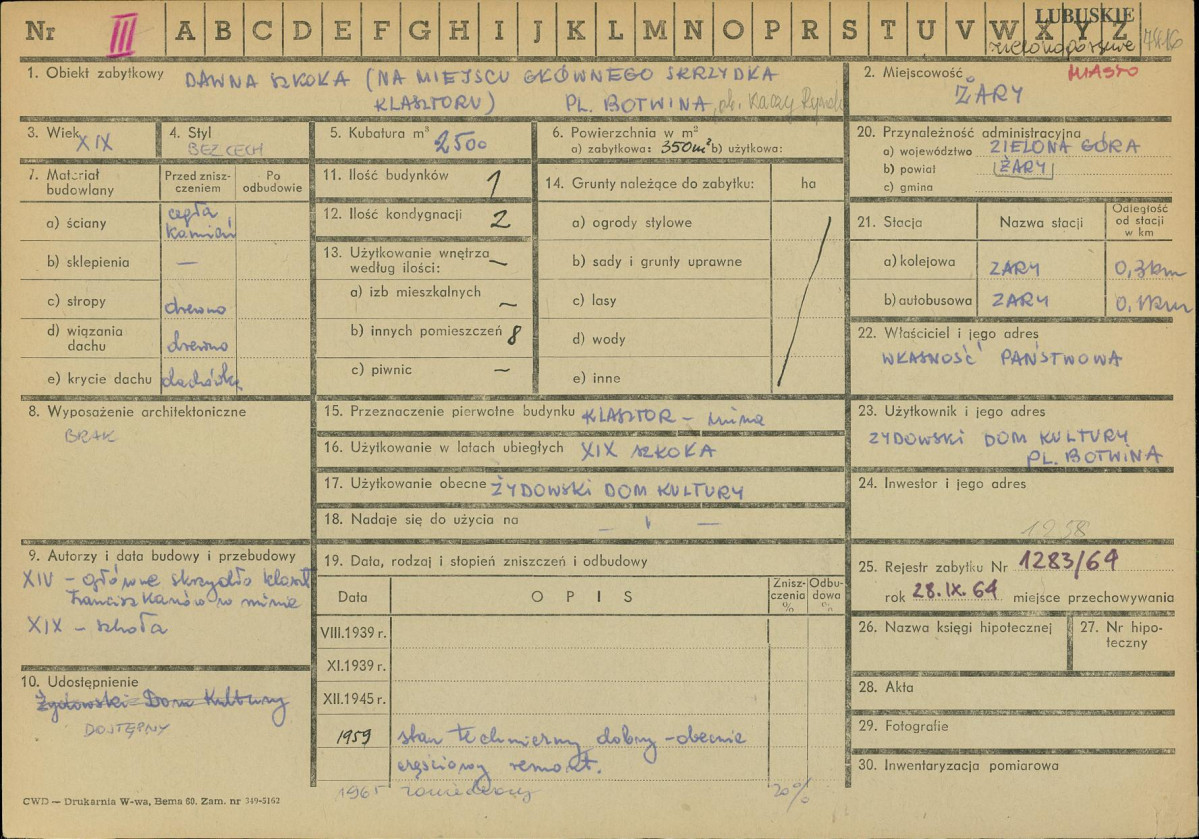 Nr III A B C D E F G H I J K L M N O P R S T U V W X Y Z
LUBUSKIE
zielonogórskie
1. Obiekt zabytkowy DAWNA SZKOŁA (NA MIEJSCU GŁÓWNEGO SKRZYDŁA
KLASZTORU) PL. BOTWINA, ob. Kaczy Rynek
2. Miejscowość MIASTO
ŻARY
3. Wiek XIX
4. Styl
BEZ CECH
5. Kubatura m³ 2500
6. Powierzchnia w m²
a) zabytkowa: 350m² b) użytkowa:
20. Przynależność administracyjna
a) województwo ZIELONA GÓRA
b) powiat ŻARY
c) gmina
7. Materiał budowlany
Przed zniszczeniem
Po odbudowie
a) ściany cegła
kamień
b) sklepienia —
c) stropy drewno
d) wiązania
dachu drewno
e) krycie dachu dachówka
11. Ilość budynków 1
12. Ilość kondygnacji 2
13. Użytkowanie wnętrza —
według ilości:
a) izb mieszkalnych —
b) innych pomieszczeń 8
c) piwnic —
14. Grunty należące do zabytku: ha
a) ogrody stylowe
b) sady i grunty uprawne
c) lasy
d) wody
e) inne
21. Stacja
Nazwa stacji
Odległość
od stacji
w km
a) kolejowa ŻARY 0,3km
b) autobusowa ŻARY 0,1km
22. Właściciel i jego adres
WŁASNOŚĆ PAŃSTWOWA
8. Wyposażenie architektoniczne
BRAK
15. Przeznaczenie pierwotne budynku KLASZTOR – ruina
16. Użytkowanie w latach ubiegłych XIX SZKOŁA
17. Użytkowanie obecne ŻYDOWSKI DOM KULTURY
18. Nadaje się do użycia na — " —
23. Użytkownik i jego adres
ŻYDOWSKI DOM KULTURY
PL. BOTWINA
24. Inwestor i jego adres
9. Autorzy i data budowy i przebudowy
XIV – główne skrzydło klaszt
Franciszkanów w ruinie
XIX – szkoła
10. Udostępnienie
Żydowski Dom Kultury
DOSTĘPNY
19. Data, rodzaj i stopień zniszczeń i odbudowy
Data
OPIS
Zniszczenia
%
Odbudowa
%
VIII.1939 r.
XI.1939 r.
XII.1945 r.
1959 stan techniczny dobry – obecnie
częściowy remont.
1965 20%
25. Rejestr zabytku Nr 1283/64
rok 28.IX.64 miejsce przechowywania
26. Nazwa księgi hipotecznej
27. Nr hipo-
teczny
28. Akta
29. Fotografie
30. Inwentaryzacja pomiarowa
CWD — Drukarnia W-wa, Bema 60. Zam. nr 349-5162